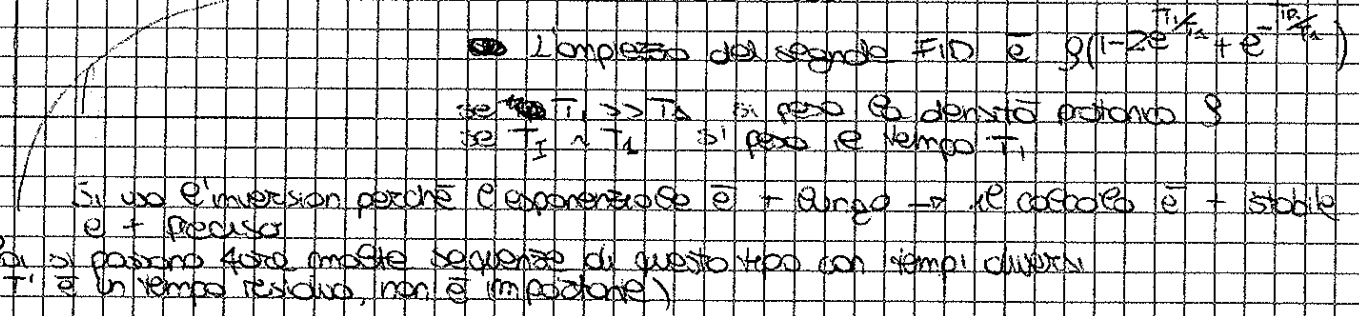 L'ampiezza del segnale FID è ρ(1-2e^-TI/T1 + e^-TR/T1)
se TI >> T1 si pesa la densità protonica ρ
se TI ~ T1 si pesa il tempo T1
Si usa l'inversion perché l'esponenziale è + lungo → il calcolo è + stabile
e + preciso
si possono fare molte sequenze di questo tipo con tempi diversi
T' è un tempo residuo, non è importante)